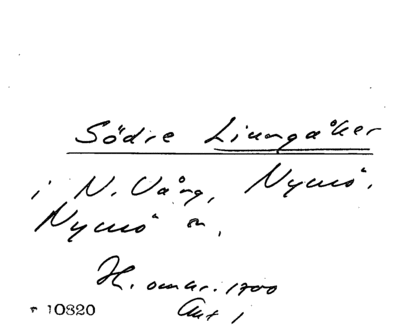 Södre Liungåker
i N. Vång, Nymö,
Nymö sn.
H. omkr. 1700
Akt 1
10820